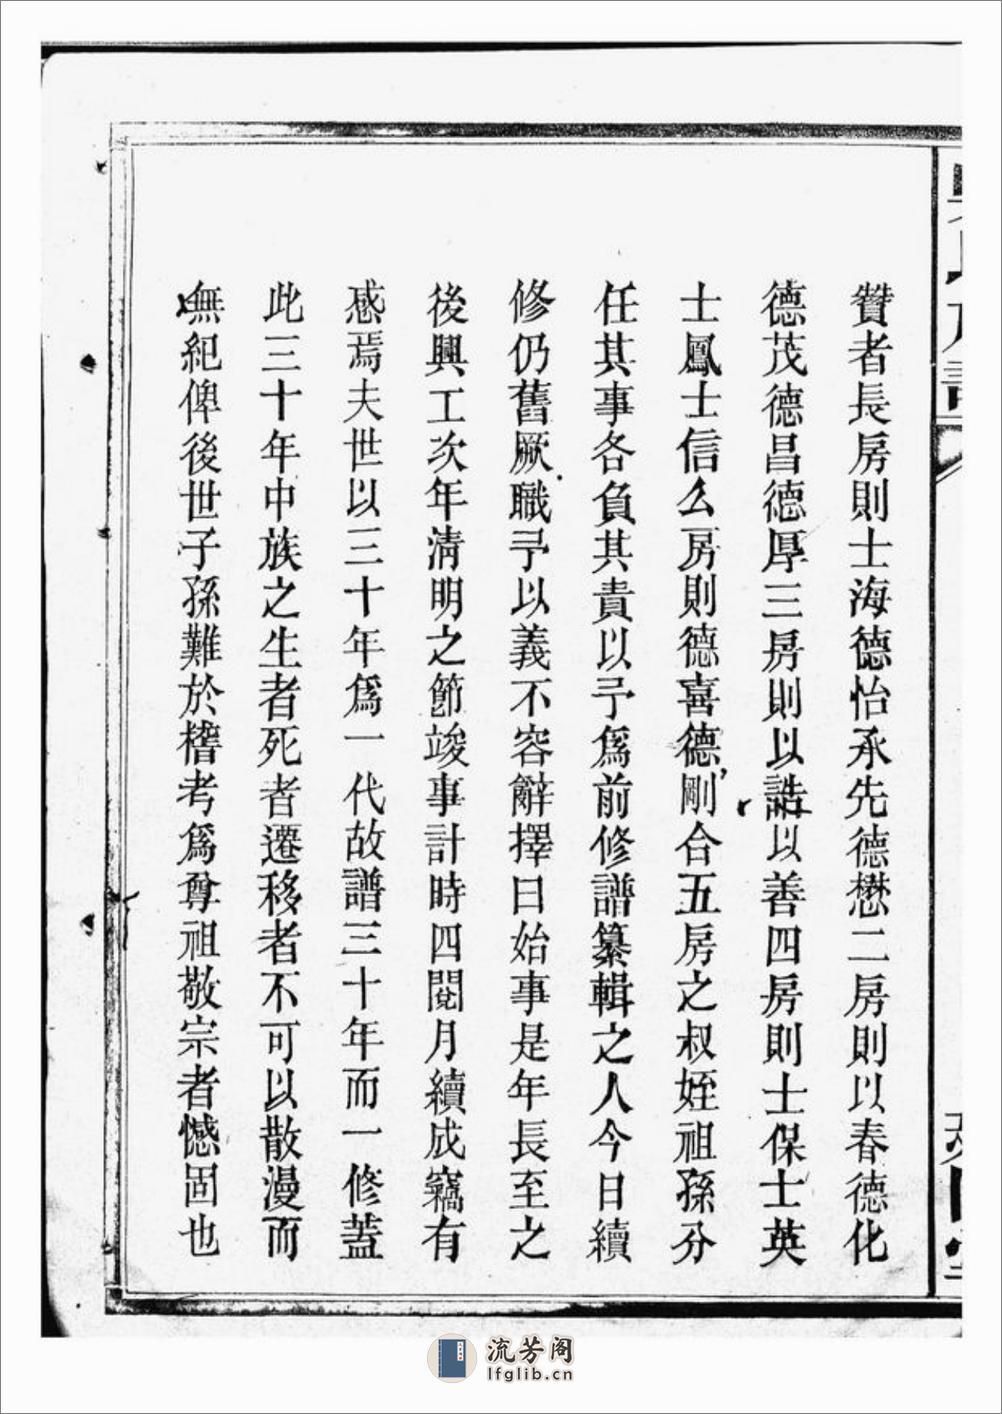 贊者長房則士海德怡承先德懋二房則以春德化
德茂德昌德厚三房則以誥以善四房則士保士英
士鳳士信么房則德喜德剛合五房之叔姪祖孫分
任其事各負其責以予爲前修譜纂輯之人今日續
修仍舊厥職予以義不容辭擇日始事是年長至之
後興工次年清明之節竣事計時四閱月續成竊有
感焉夫世以三十年爲一代故譜三十年而一修蓋
此三十年中族之生者死者遷移者不可以散漫而
無紀俾後世子孫難於稽考爲尊祖敬宗者憾固也
流芳阁
lfglib.cn